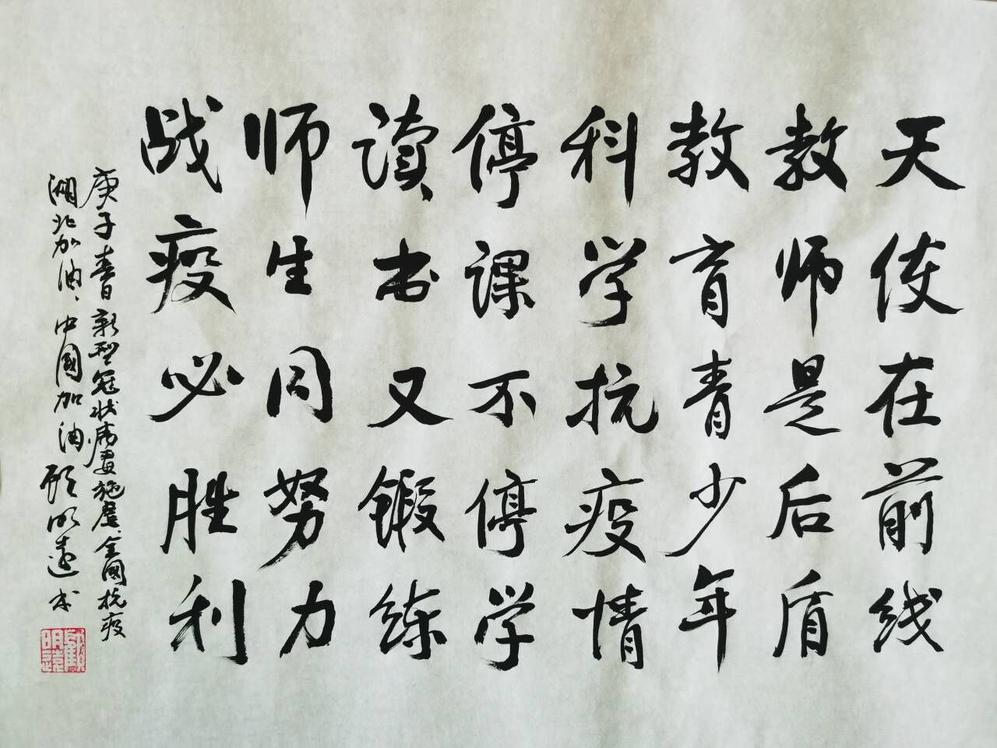 天使在前线
教师是后盾
教育青少年
科学抗疫情
停课不停学
读书又锻练
师生同努力
战疫必胜利
庚子春日新型冠状病毒施虐、全国抗疫
湖北加油、中国加油 顾明远书